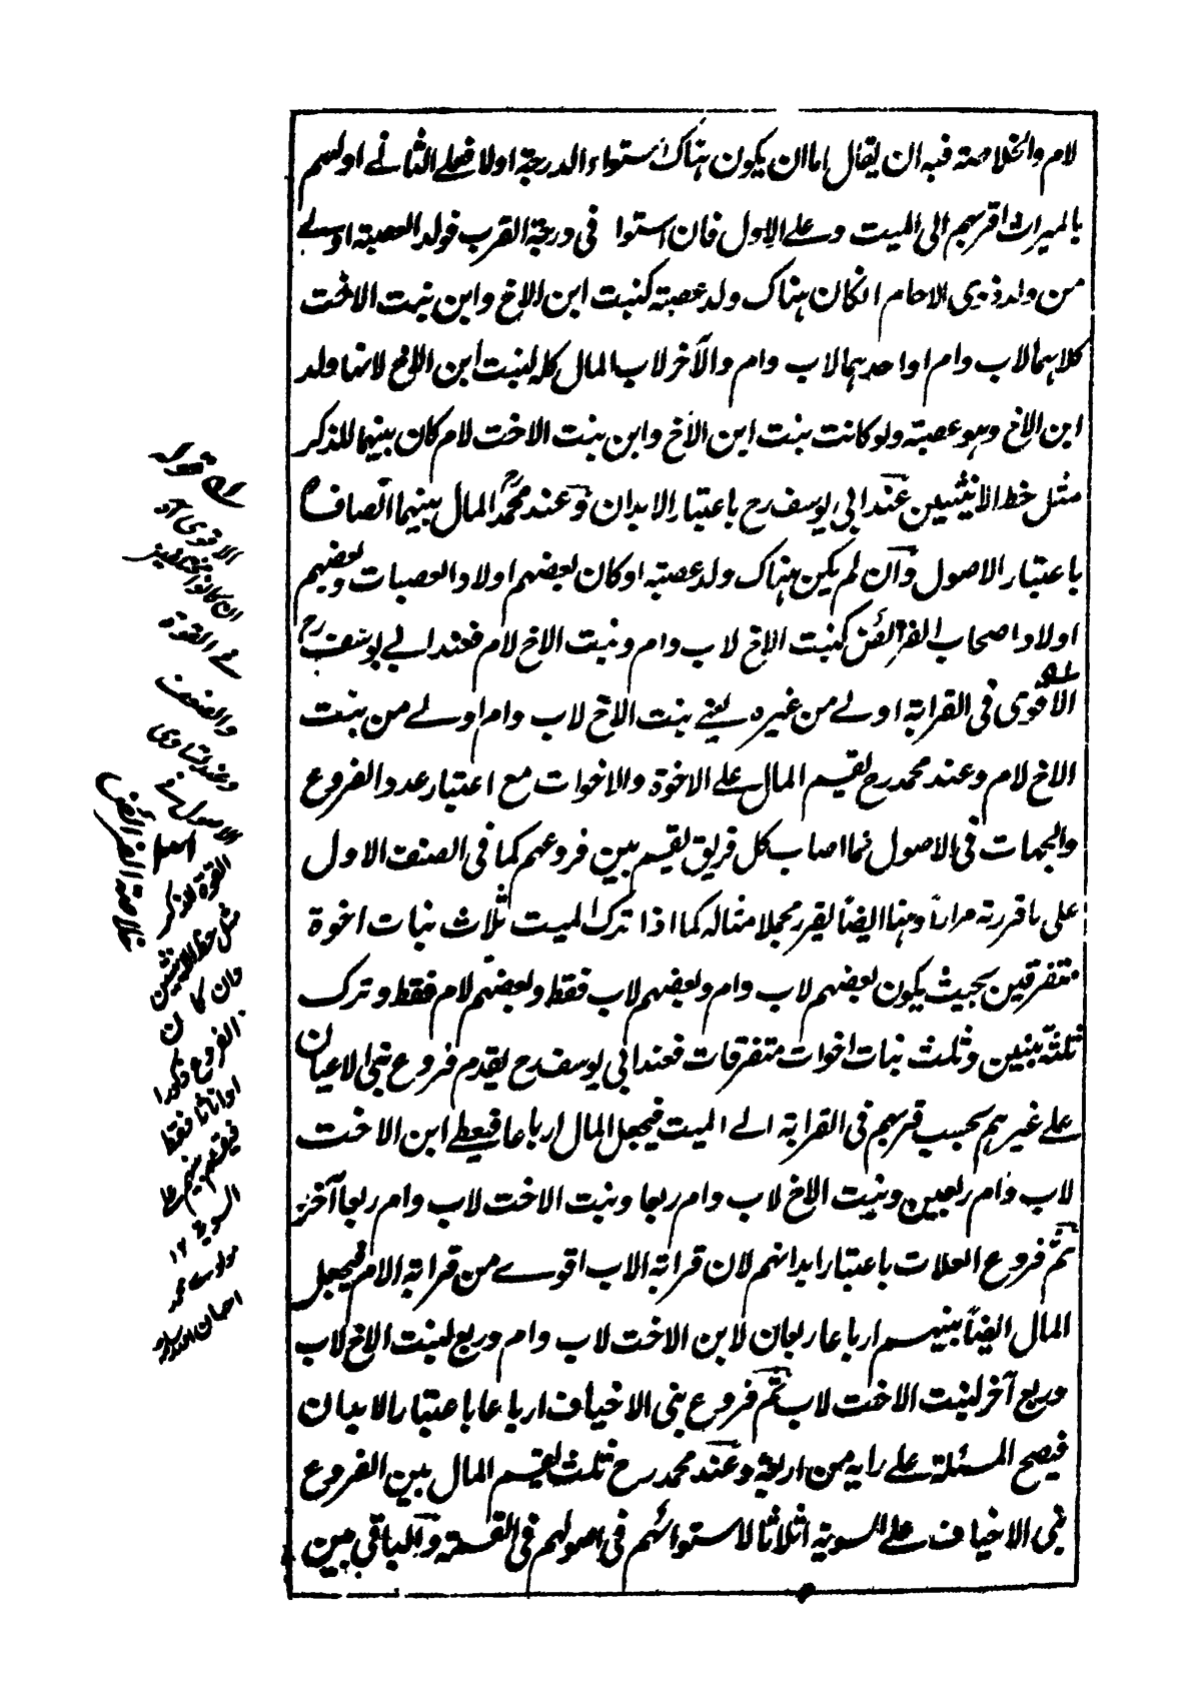 لام والخلاصة فيه ان يقال اما ان يكون هناك استواء الدرجة اولا فعلى الثانى اولهم
بالميراث اقربهم الى الميت وعلى الاول فان استوا فى درجة القرب فولد العصبة اولى
من ولد ذوى الارحام انكان هناك ولد عصبة كبنت ابن الاخ وابن بنت الاخت
كلاهما لاب وام او احدهما لاب وام والآخر لاب المال كله لبنت ابن الاخ لانها ولد
ابن الاخ وهو عصبة ولو كانت بنت ابن الاخ وابن بنت الاخت لام كان بينهما للذكر
مثل حظ الانثيين عند ابى يوسف رح باعتبار الابدان وعند محمد رح المال بينهما انصافا
باعتبار الاصول وان لم يكن هناك ولد عصبة او كان بعضهم اولاد العصبات وبعضهم
اولاد اصحاب الفرائض كبنت الاخ لاب وام وبنت الاخ لام فعند ابى يوسف رح
الاقوى فى القرابة اولى من غيره يعنى بنت الاخ لاب وام اولى من بنت
الاخ لام وعند محمد رح يقسم المال على الاخوة والاخوات مع اعتبار عدد الفروع
والجهات فى الاصول فما اصاب كل فريق يقسم بين فروعهم كما فى الصنف الاول
على ما قررته مرارا وهنا ايضا يقرر مجملا مثاله كما اذا ترك الميت ثلاث بنات اخوة
متفرقين بحيث يكون بعضهم لاب وام وبعضهم لاب فقط وبعضهم لام فقط وترك
ثلثة بنين وثلث بنات اخوات متفرقات فعند ابى يوسف رح يقدم فروع بنى الاعيان
على غيرهم بحسب قربهم فى القرابة الى الميت فيجعل المال ارباعا فيعطى ابن الاخت
لاب وام ربعين وبنت الاخ لاب وام ربعا وبنت الاخت لاب وام ربعا آخر
ثم فروع العلات باعتبار ابدانهم لان قرابة الاب اقوى من قرابة الام فيجعل
المال ايضا بينهم ارباعا ربعان لابن الاخت لاب وام وربع لبنت الاخ لاب
وربع آخر لبنت الاخت لاب ثم فروع بنى الاخياف ارباعا باعتبار الابدان
فيصح المسئلة على رايه من اربعة وعند محمد رح ثلث يقسم المال بين الفروع
بنى الاخياف على السوية اثلاثا لاستوائهم فى اصولهم فى القسمة والباقى بين
له قوله
الاقوى آه
ان كانوا مختلفين
فى القوة
والضعف
وعند تساوى
الاصول فى
القوة للذكر
مثل حظ الانثيين
وان كان
الفروع ذكورا
او اناثا فقط
فيقسم بينهم على
السوية ١٢
مولوى محمد
احسان الله
خلاصة الفرائض